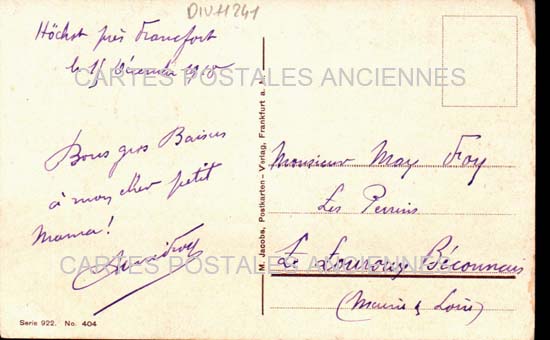 DIV11241
Höchst près Francfort
le 15 Décembre 1918
CARTES POSTALES ANCIENNES
Bons gros Baisers
à mon cher petit
Mama!
M. Jacobs, Postkarten-Verlag, Frankfurt a.
Monsieur May Froy
Les Perrins
Le Louroux Béconnais
(Maine & Loire)
CARTES POSTALES ANCIENNES
Serie 922. No. 404